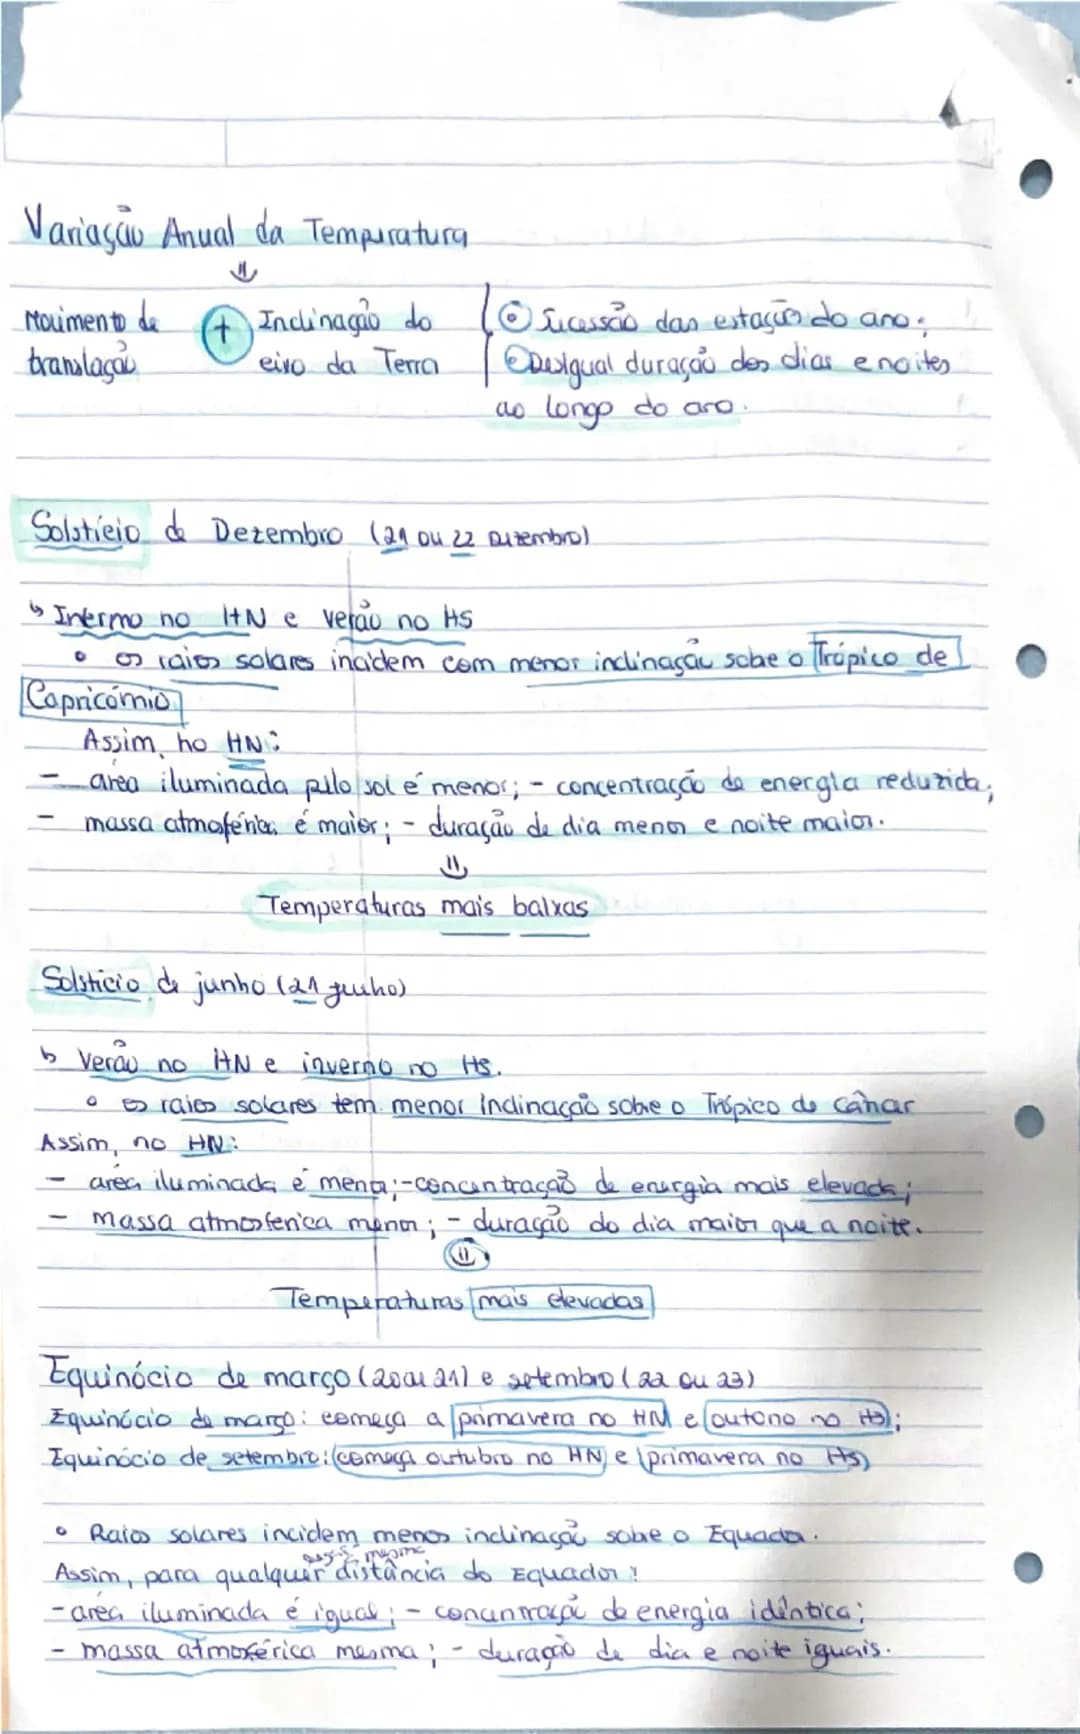 Variação Anual da Temperatura
⇓
Movimento de translação + Inclinação do eixo da Terra
• Sucessão das estações do ano;
• Desigual duração dos dias e noites
ao longo do ano.
Solstício de Dezembro (21 ou 22 Dezembro)
↳ Inverno no HN e verão no HS
• os raios solares incidem com menor inclinação sobe o Trópico de
Capricórnio
Assim, no HN:
- area iluminada pelo sol é menor; - concentração de energia reduzida;
- massa atmoférica é maior; - duração de dia menor e noite maior.
⇓
Temperaturas mais baixas
Solsticio de junho (21 junho)
↳ Verão no HN e inverno no HS.
• os raios solares tem menor inclinação sobre o Trópico de Câncer
Assim, no HN:
- area iluminada é menor; - concentração de energia mais elevada;
- massa atmosferica menor; - duração do dia maior que a noite.
⇓
Temperaturas mais elevadas
Equinócio de março (20 ou 21) e setembro (22 ou 23)
Equinócio de março: começa a primavera no HN e outono no HS;
Equinócio de setembro: começa outubro no HN e primavera no HS
• Raios solares incidem menos inclinação sobe o Equador.
mesma
Assim, para qualquer distância do Equador:
- area iluminada é igual; - concentração de energia idêntica;
- massa atmosférica mesma; - duração de dia e noite iguais.